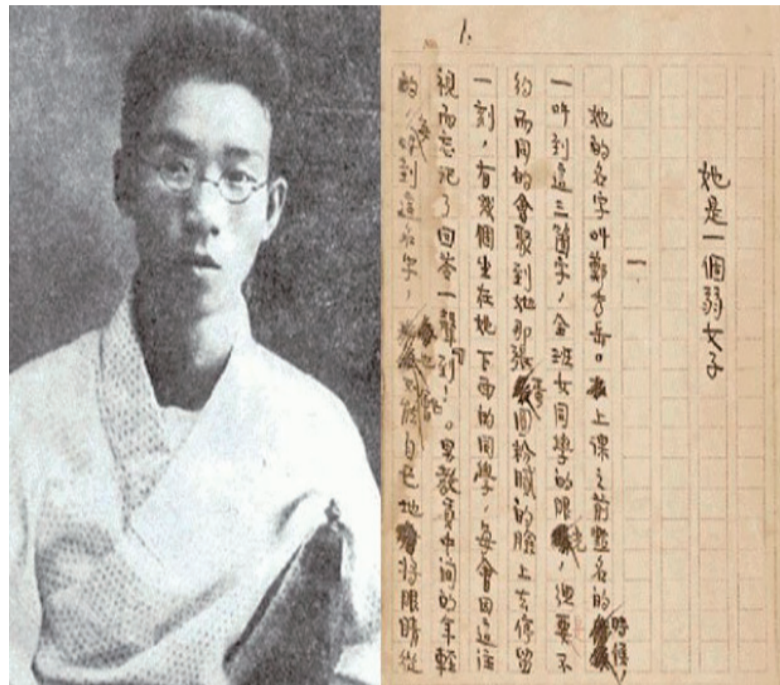 1.
她是一個弱女子
一
她的名字叫鄭秀岳。上課之前點名的時候,
一叫到這三箇字,全班女同學的眼光,總要不
約而同的會聚到她那張蛋圓粉膩的臉上去停留
一刻,有幾個坐在她下面的同學,每會因這注
視而忘記了回答一聲『到!』。男教員中间的年輕
的,每叫到這名字,也不能自已地將眼睛從